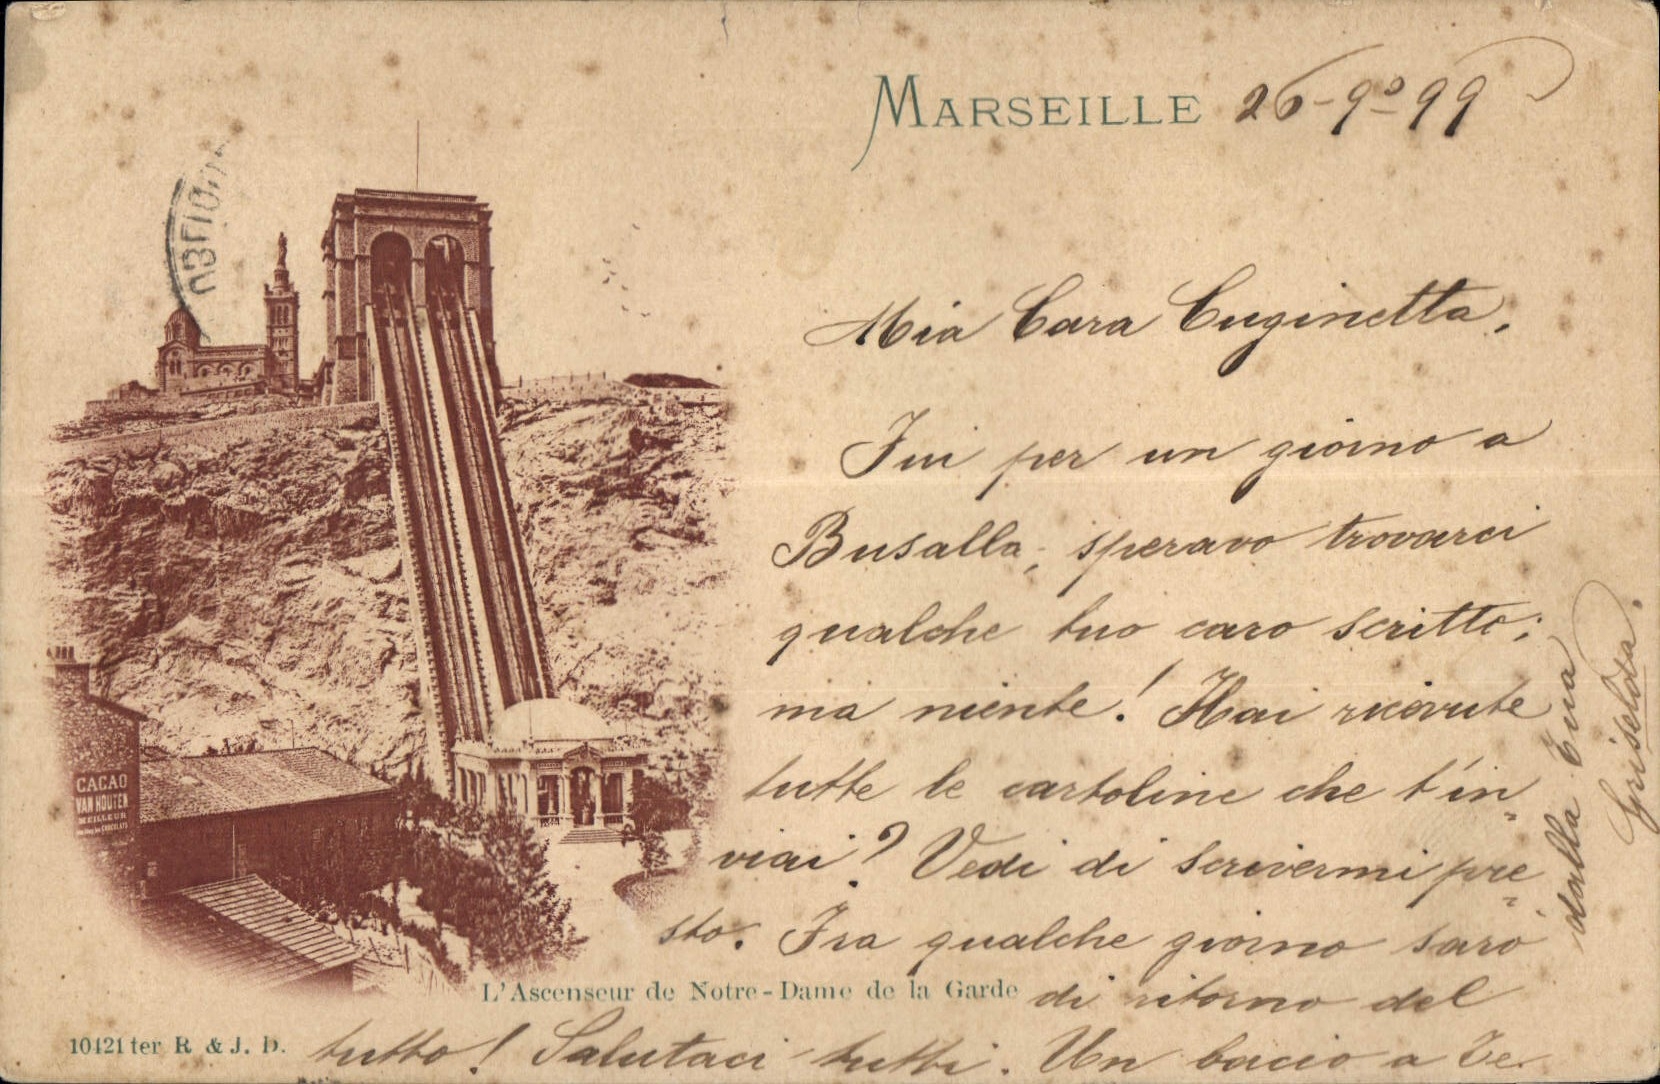 MARSEILLE 26-9º-99
Mia Cara Cuginetta,
Fui per un giorno a
Busalla, speravo trovarci
qualche tuo caro scritto;
ma niente! Hai ricevute
tutte le cartoline che t'in
viai? Vedi di scrivermi pre
sto. Fra qualche giorno sarò
di ritorno del
tutto! Salutaci tutti. Un bacio a Te.
dalla tua
Griselda.
CACAO
VAN HOUTEN
MEILLEUR
L'Ascenseur de Notre-Dame de la Garde
10421 ter R & J. D.